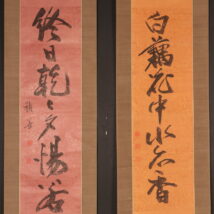 白藕花中水亦香
終日乾々夕惕若